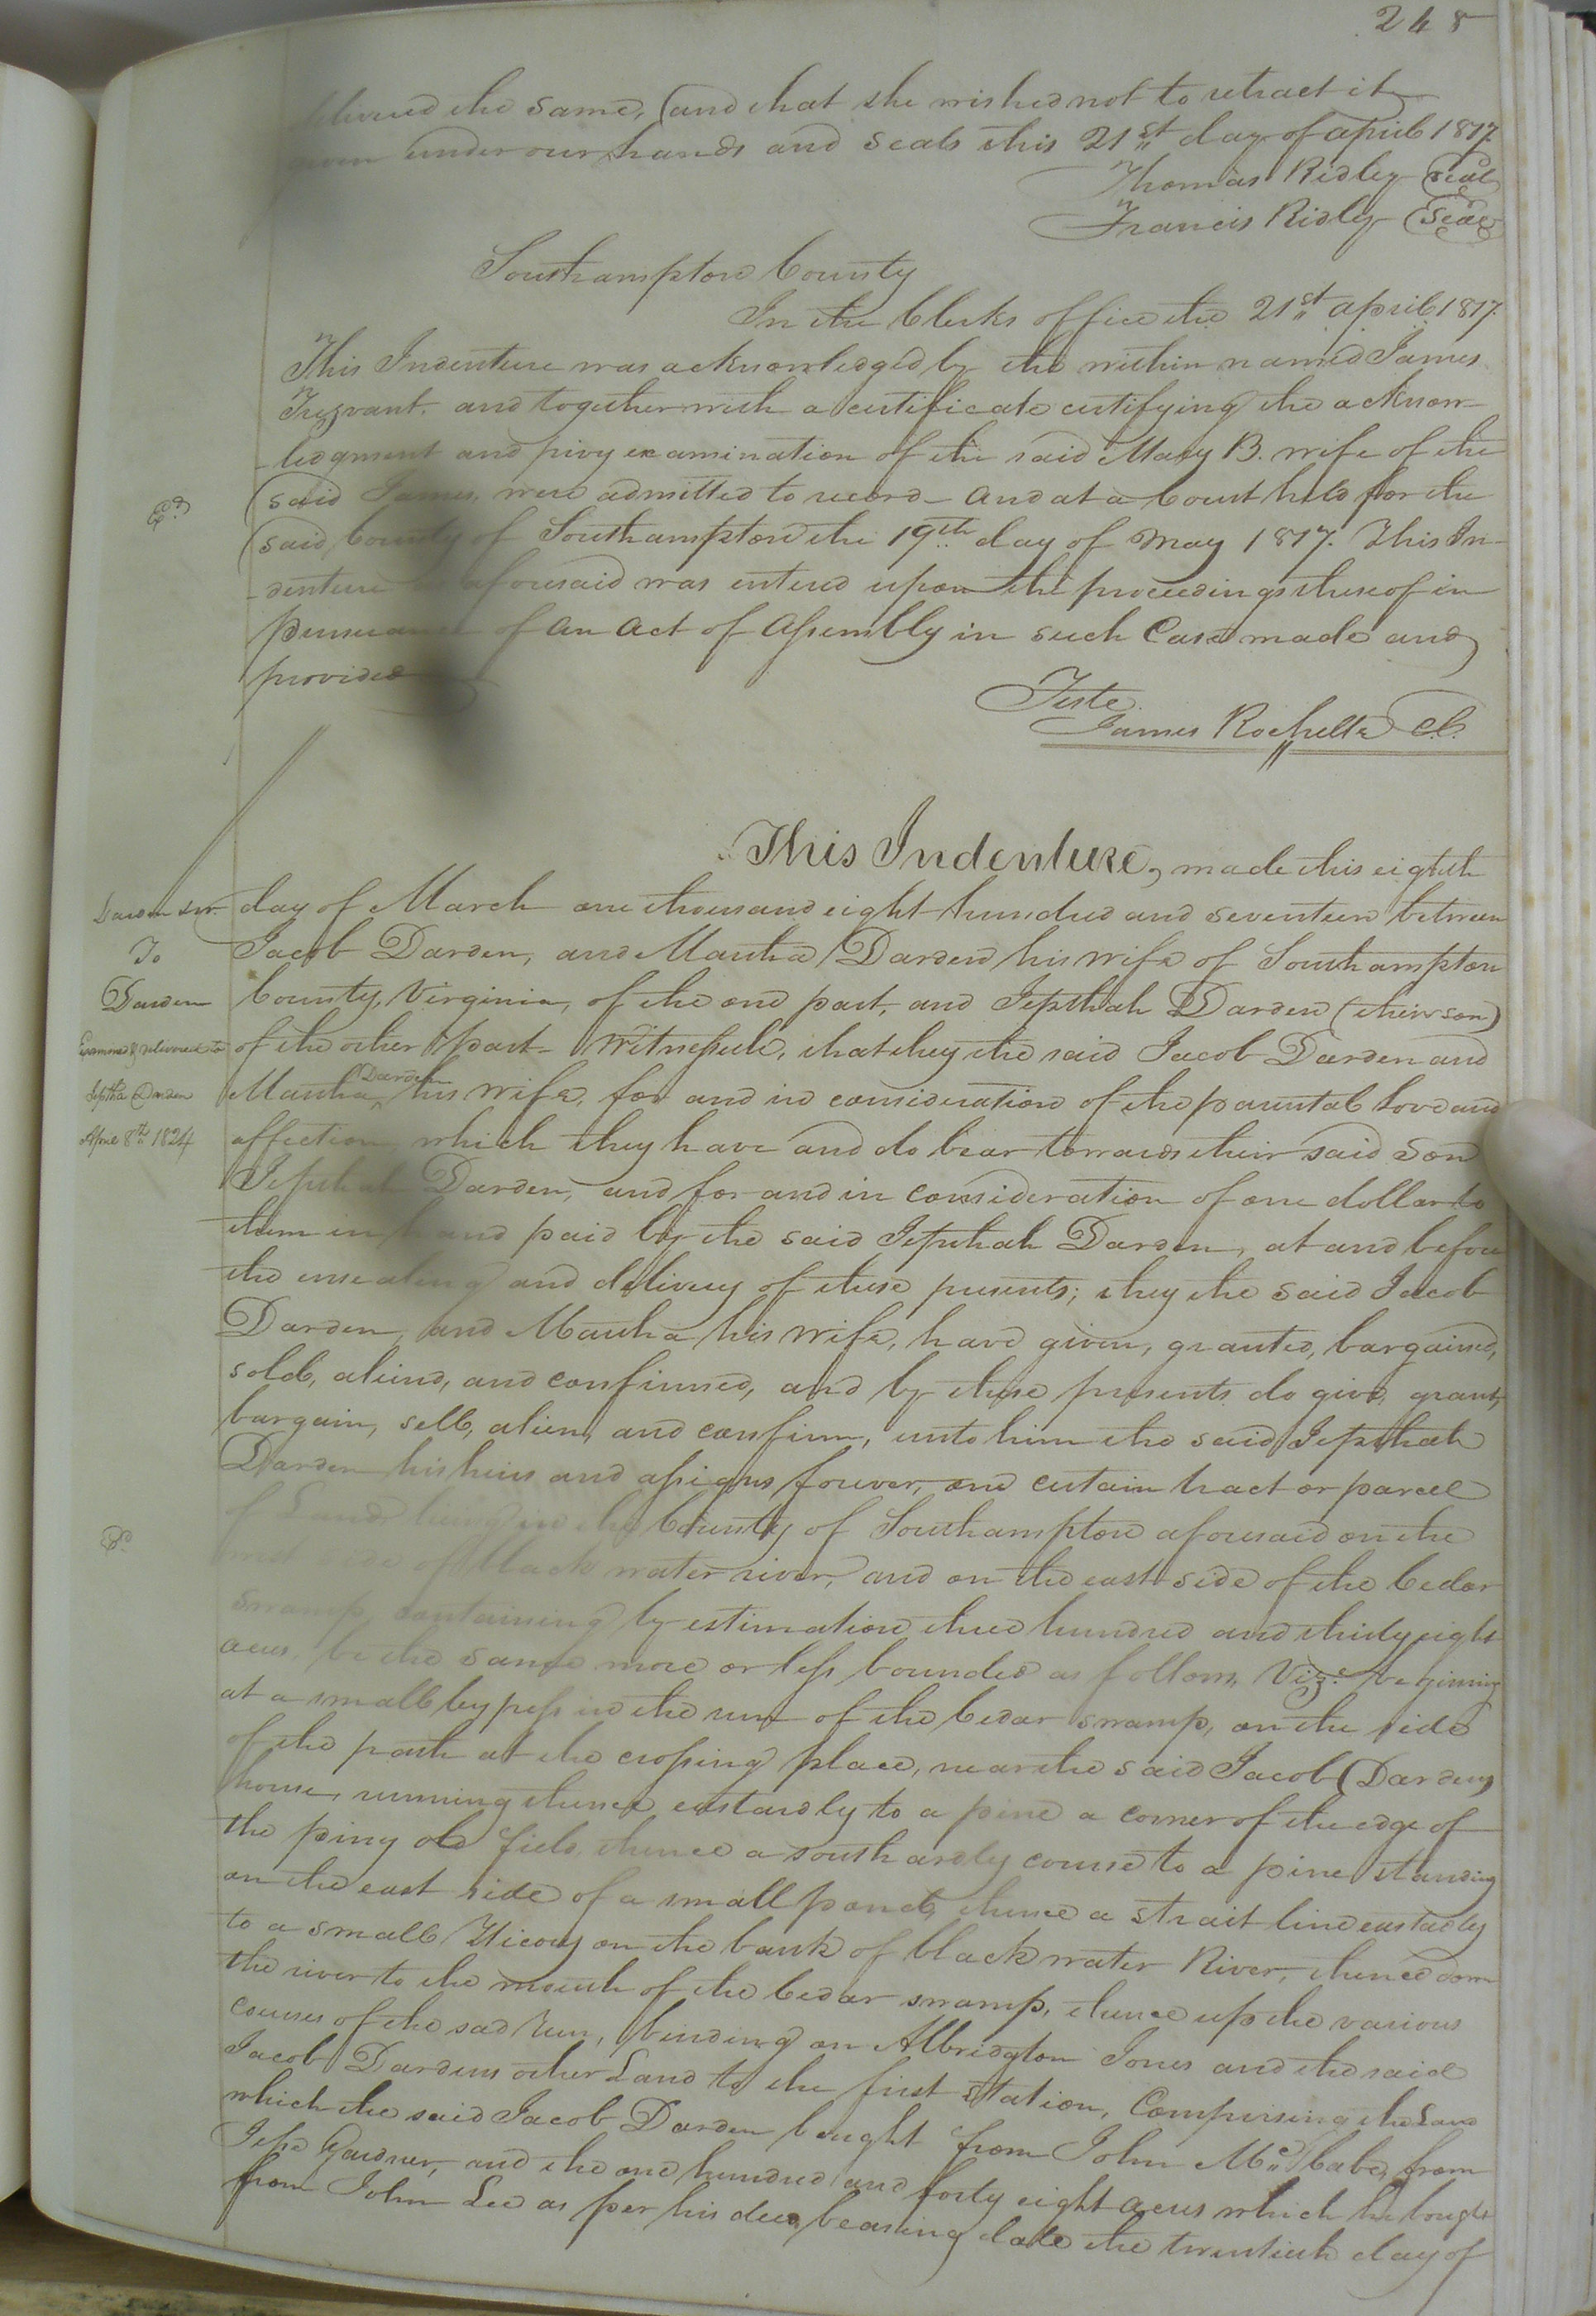 248
delivered the same, and that she wished not to retract it
given under our hands and seals this 21st day of april 1817.
Thomas Ridley seal
Francis Ridley Seal
Southampton County
In the Clerks office the 21st april 1817.
This Indenture was acknowledged by the within named James
Trezvant. and together with a certificate certifying the acknow-
-ledgment and privy examination of the said Mary B. wife of the
said James, were admitted to record - and at a Court held for the
said County of Southampton the 19th day of May 1817. This In-
-denture aforesaid was entered upon the proceedings thereof in
pursuance of an act of Assembly in such Case made and
provided
Teste
James Rochelle C.C.
Ed
This Indenture, made this eighth
day of March one thousand eight hundred and seventeen between
Jacob Darden, and Martha Darden his wife of Southampton
County, Virginia, of the one part, and Jepthah Darden (their son)
of the other part - Witnesseth, that they the said Jacob Darden and
Martha Darden his wife, for and in consideration of the parental love and
affection which they have and do bear towards their said Son
Jepthah Darden, and for and in consideration of one dollar to
them in hand paid by the said Jepthah Darden, at and before
the ensealing and delivery of these presents; they the said Jacob
Darden, and Martha his wife, have given, granted, bargained,
sold, aliend, and confirmed, and by these presents do give, grant,
bargain, sell, alien, and confirm, unto him the said Jepthah
Darden his heirs and assigns forever, one certain tract or parcel
of Land lying in the County of Southampton aforesaid on the
side of black water river, and on the east side of the Cedar
swamp, containing by estimation three hundred and thirty eight
acres, be the same more or less bounded as follows, Vizt. beginning
at a small cypress in the run of the Cedar swamp, on the side
of the path at the crossing place, near the said Jacob Dardens
house, running thence eastardly to a pine a corner of the edge of
the piny old field, thence a southardly course to a pine standing
on the east side of a small pond, thence a strait line eastardly
to a small Hicory on the bank of black water River, thence down
the river to the mouth of the Cedar swamp, thence up the various
courses of the sad run, binding on Albridgton Jones and the said
Jacob Dardens other Land to the first station, Comprising the Land
which the said Jacob Darden bought from John McCabe, from
Jesse Gardner, and the one hundred and forty eight acres which he bought
from John Lee as per his deed bearing date the twentieth day of
Darden Snr.
To
Darden
Examined & delivered to
Jeptha Darden
April 8th 1824
Ed